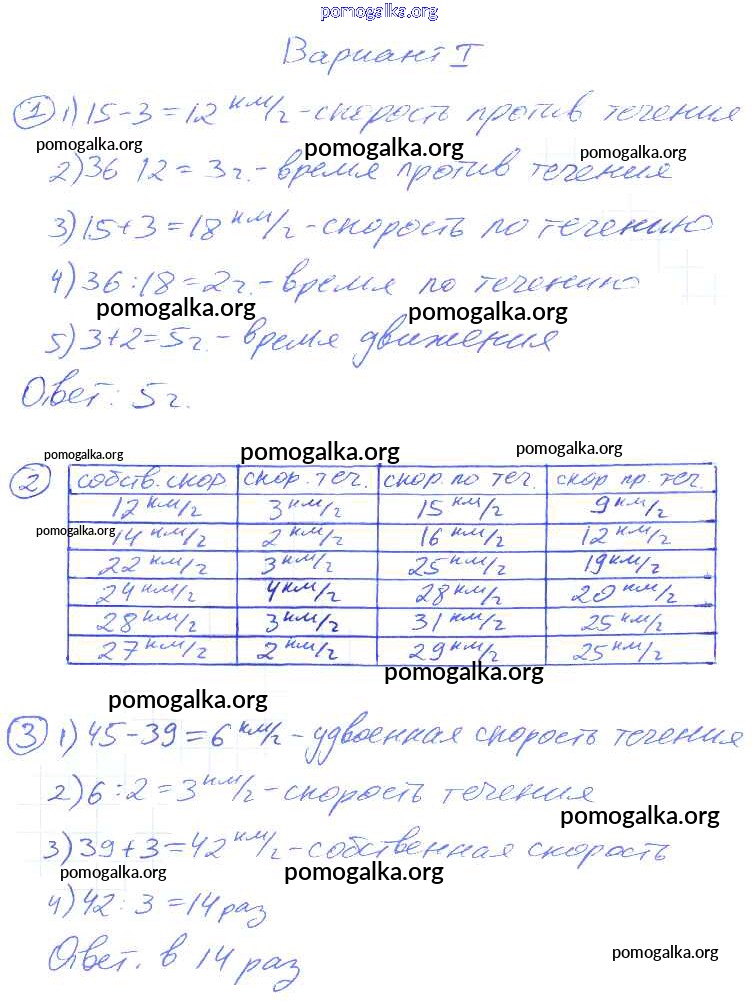 pomogalka.org
Вариант I
1 1) 15-3=12 км/г - скорость против течения
pomogalka.org pomogalka.org pomogalka.org
2) 36 12=3г. - время против течения
3) 15+3=18 км/г - скорость по течению
4) 36:18=2г. - время по течению
pomogalka.org pomogalka.org
5) 3+2=5г. - время движения
Ответ: 5г.
pomogalka.org pomogalka.org pomogalka.org
2 собств. скор скор. теч. скор. по теч. скор пр. теч.
12 км/г 3 км/г 15 км/г 9 км/г
pomogalka.org
14 км/г 2 км/г 16 км/г 12 км/г
22 км/г 3 км/г 25 км/г 19 км/г
24 км/г 4 км/г 28 км/г 20 км/г
28 км/г 3 км/г 31 км/г 25 км/г
27 км/г 2 км/г 29 км/г 25 км/г
pomogalka.org
pomogalka.org
3 1) 45-39=6 км/г - удвоенная скорость течения
2) 6:2=3 км/г - скорость течения
pomogalka.org
3) 39+3=42 км/г - собственная скорость
pomogalka.org pomogalka.org
4) 42:3=14 раз
Ответ. в 14 раз
pomogalka.org